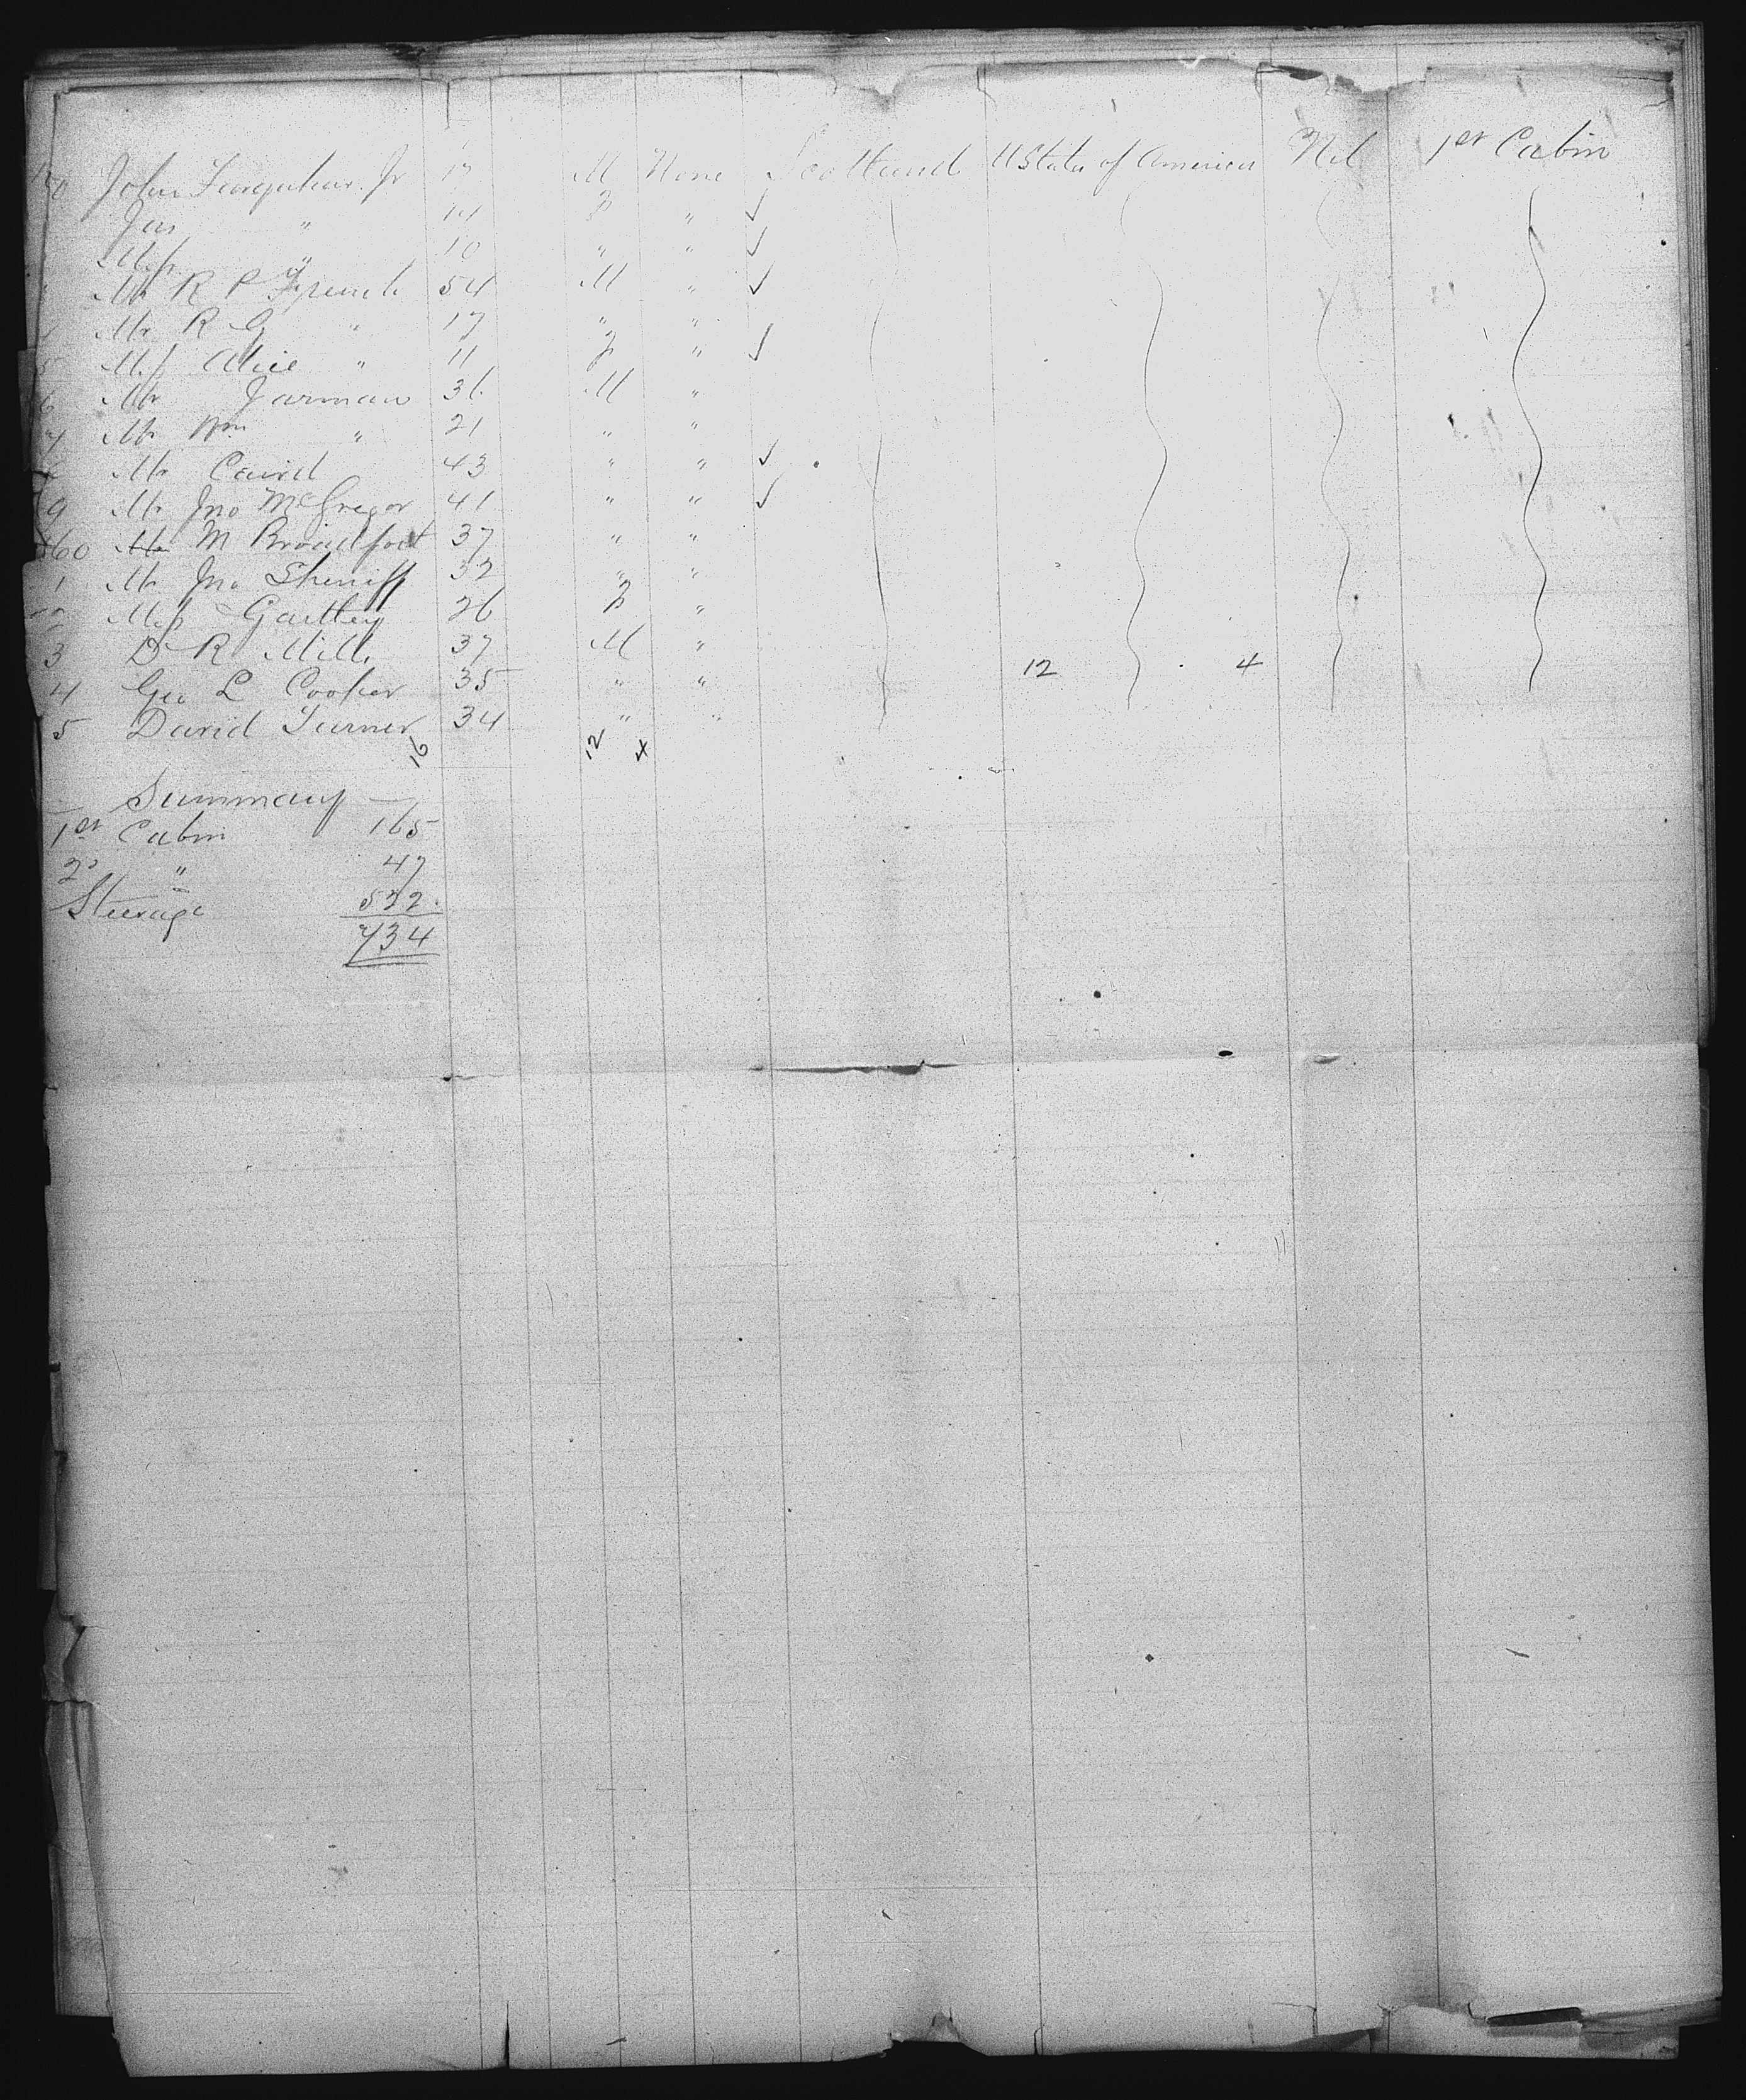 0 John Farquhar Jr 17 M None Scotland U States of America Nil 1st Cabin
Jas " 14 F " ✓
Miss " 10 " " ✓
Mr R P French 54 M " ✓
Mr R G " 17 " "
5 Miss Alice " 11 F " ✓
6 Mr Jarman 36 M "
7 Mr Wm " 21 " "
Mr Caird 43 " " ✓
9 Mr Jno McGregor 41 " " ✓
60 M Broadfoot 37 " "
1 Mr Jno Sherriff 32 " "
2 Miss Gartley 26 F "
3 D R Mills 37 M " 12 4
4 Geo L Cooper 35 " "
5 David Turner 34 " "
16 12 4
Summary
1st Cabin 165
2d " 47
Steerage 522
734